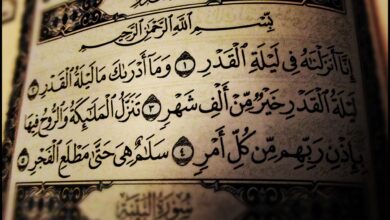 بِسْمِ اللَّهِ الرَّحْمَٰنِ الرَّحِيمِ
إِنَّا أَنزَلْنَاهُ فِي لَيْلَةِ الْقَدْرِ ١ وَمَا أَدْرَاكَ مَا لَيْلَةُ الْقَدْرِ ٢
لَيْلَةُ الْقَدْرِ خَيْرٌ مِّنْ أَلْفِ شَهْرٍ ٣ تَنَزَّلُ الْمَلَائِكَةُ وَالرُّوحُ فِيهَا
بِإِذْنِ رَبِّهِم مِّن كُلِّ أَمْرٍ ٤ سَلَامٌ هِيَ حَتَّىٰ مَطْلَعِ الْفَجْرِ ٥
سُورَةُ الْبَيِّنَةِ